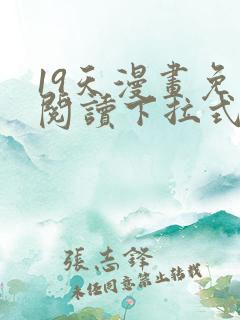 19天漫畫免
閱讀下拉式
張志鋒
未經同意禁止轉載